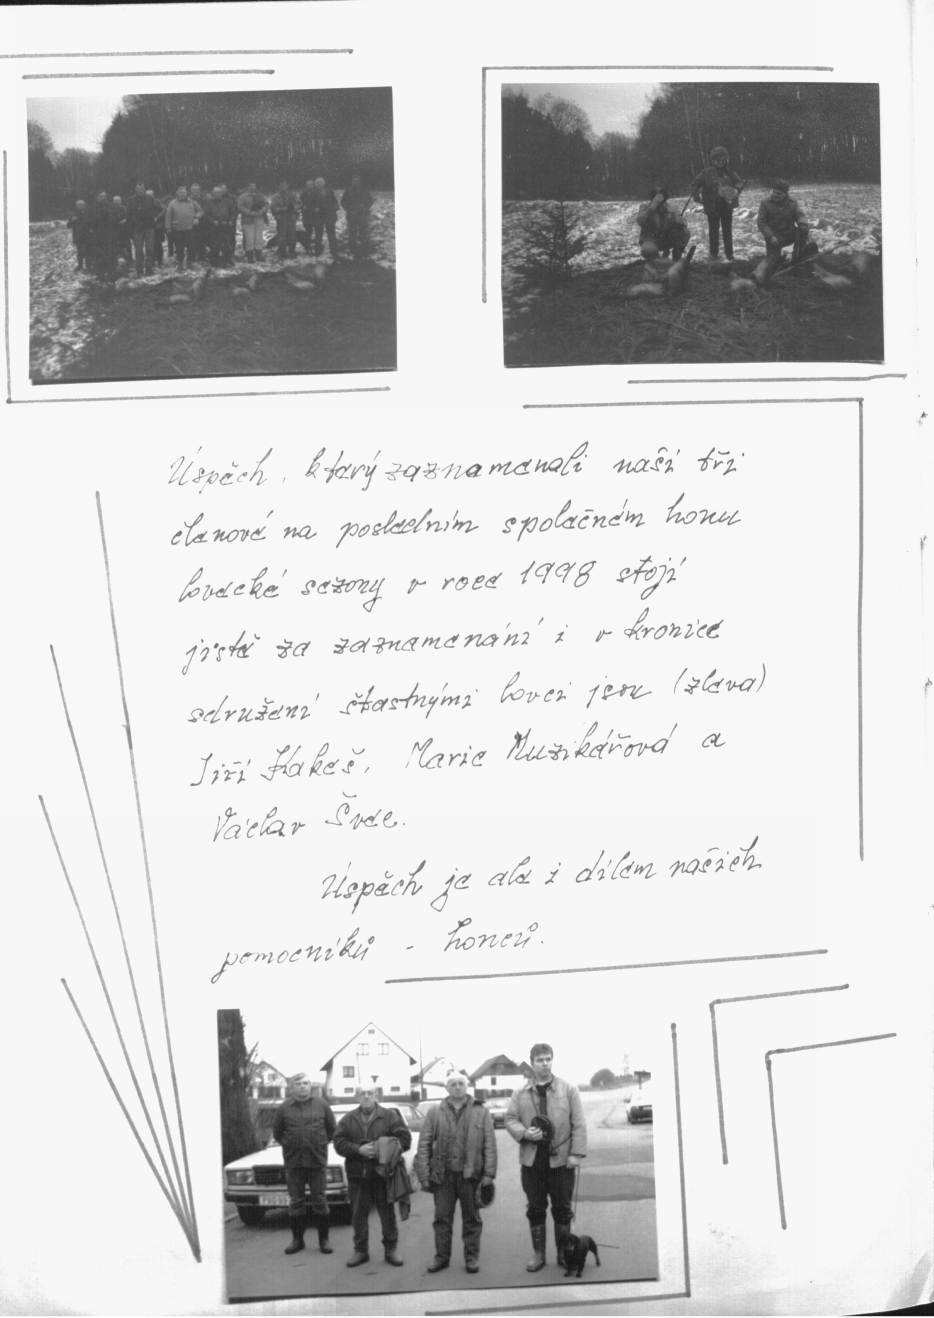 Úspěch, který zaznamenali naši tři
členové na posledním společném honu
lovecké sezony v roce 1998 stojí
jistě za zaznamenání i v kronice
sdružení šťastnými lovci jsou (zleva)
Jiří Kakeš, Marie Muzikářová a
Václav Švec.
Úspěch je ale i dílem našich
pomocníků - honců.